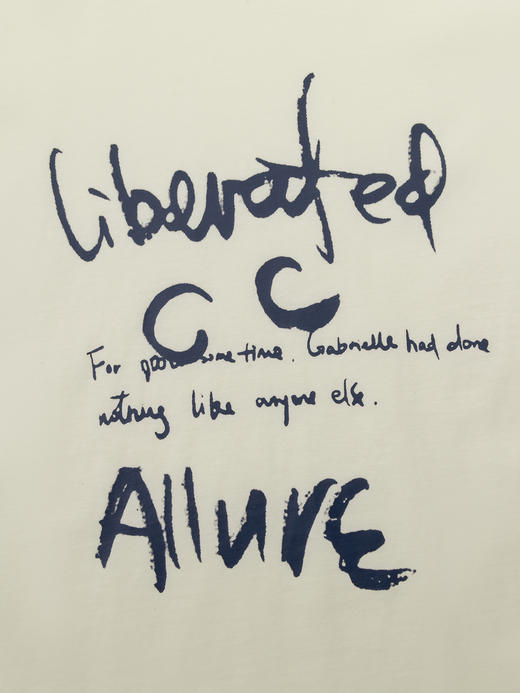 Liberated
C C
For some time. Gabrielle had done
nothing like anyone else.
Allure